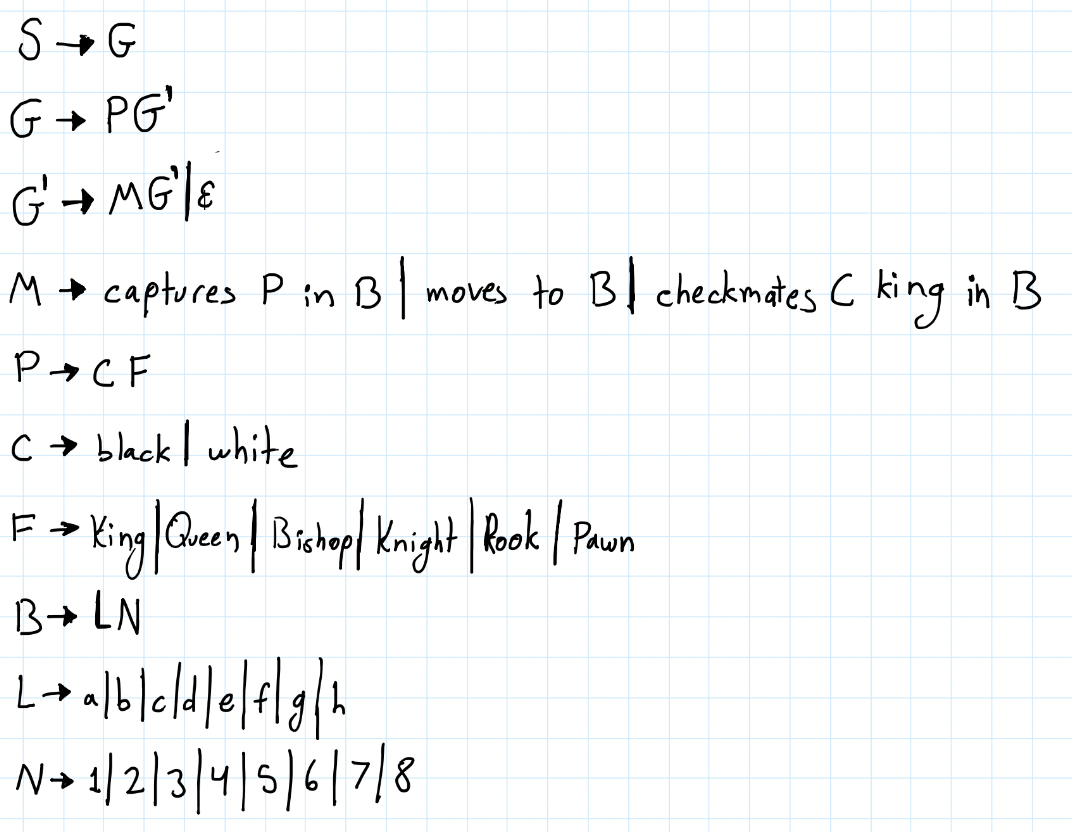 S → G
G → PG'
G' → MG'|ε
M → captures P in B | moves to B | checkmates C king in B
P → C F
C → black | white
F → King|Queen | Bishop| Knight | Rook | Pawn
B → LN
L → a|b|c|d|e|f|g|h
N → 1|2|3|4|5|6|7|8